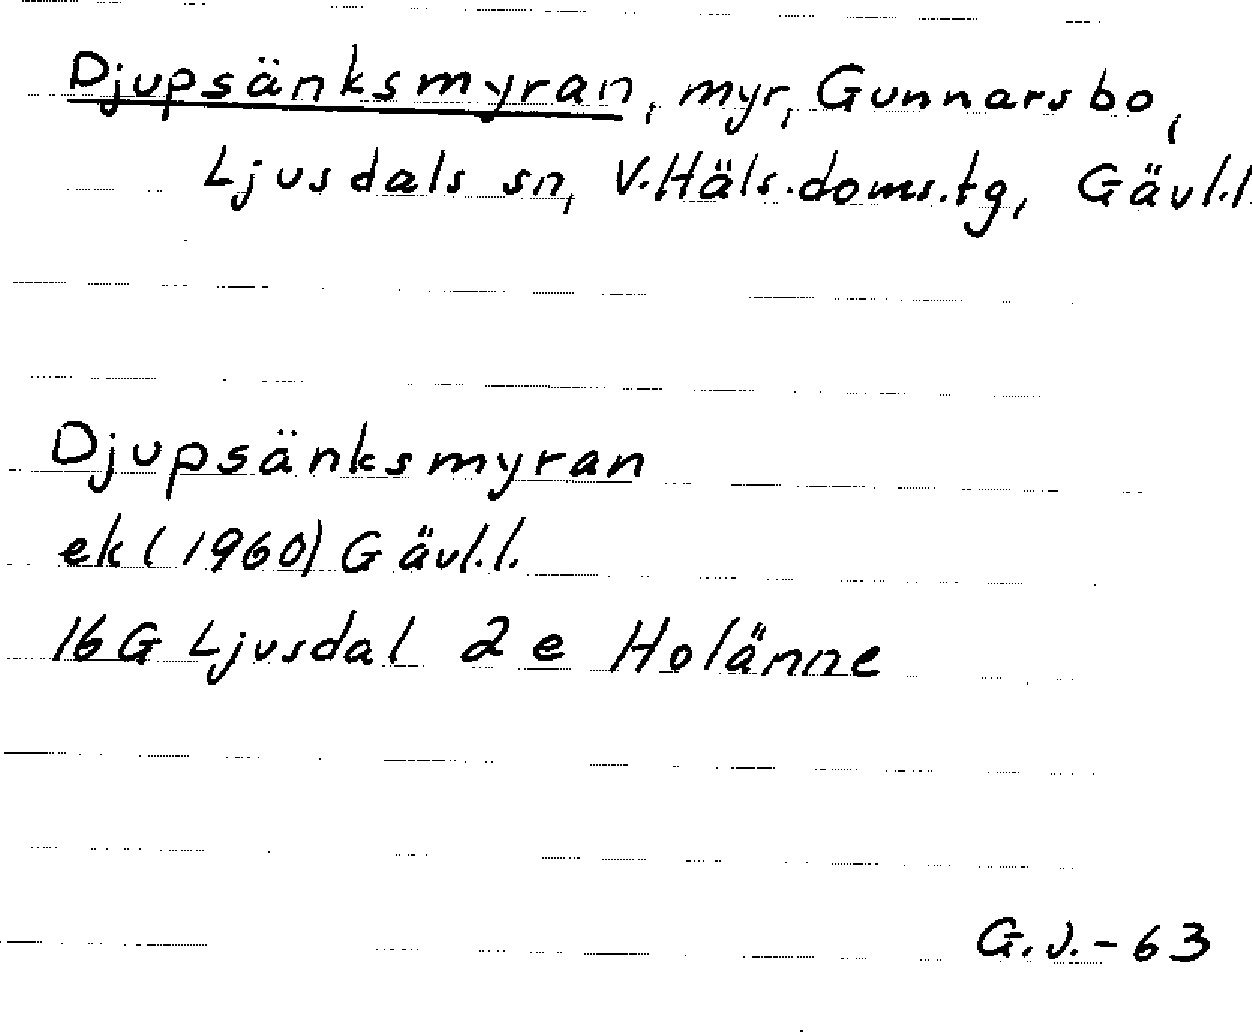 Djupsänksmyran, myr, Gunnarsbo,
Ljusdals sn, V.Häls.doms.tg, Gävl.l.
Djupsänksmyran
ek (1960) Gävl.l.
16G Ljusdal 2 e Holänne
G.J.-63